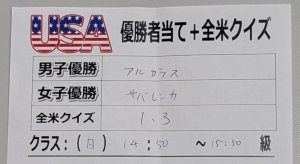 USA 優勝者当て+全米クイズ
男子優勝 アルカラス
女子優勝 サバレンカ
全米クイズ 1.3
クラス:(日) 14:50 ~15:50 級